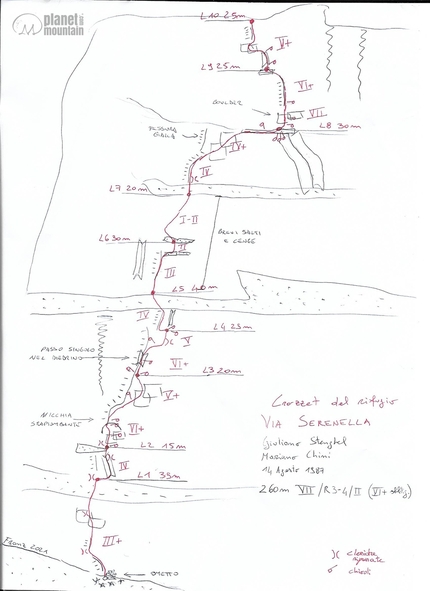 planet mountain
L10 25m
V+
L9 25m
VI+
BOULDER
VII
L8 30m
FESSURA
GIALLA
IV+
IV
L7 20m
I-II
L6 30m
II
BREVI SALTI
E CENGE
III
L5 40m
IV
L4 25m
V
PASSO SINGOLO
NEL DIEDRINO
VI+
L3 20m
V+
NICCHIA
STRAPIOMBANTE
VI+
L2 15m
IV
L1 35m
III+
2021
OMETTO
Crozzet del rifugio
VIA SERENELLA
Giuliano Stenghel
Mariano Chini
14 Agosto 1987
260m VII/R3-4/II (VI+ obblig)
clessidra
chiodi